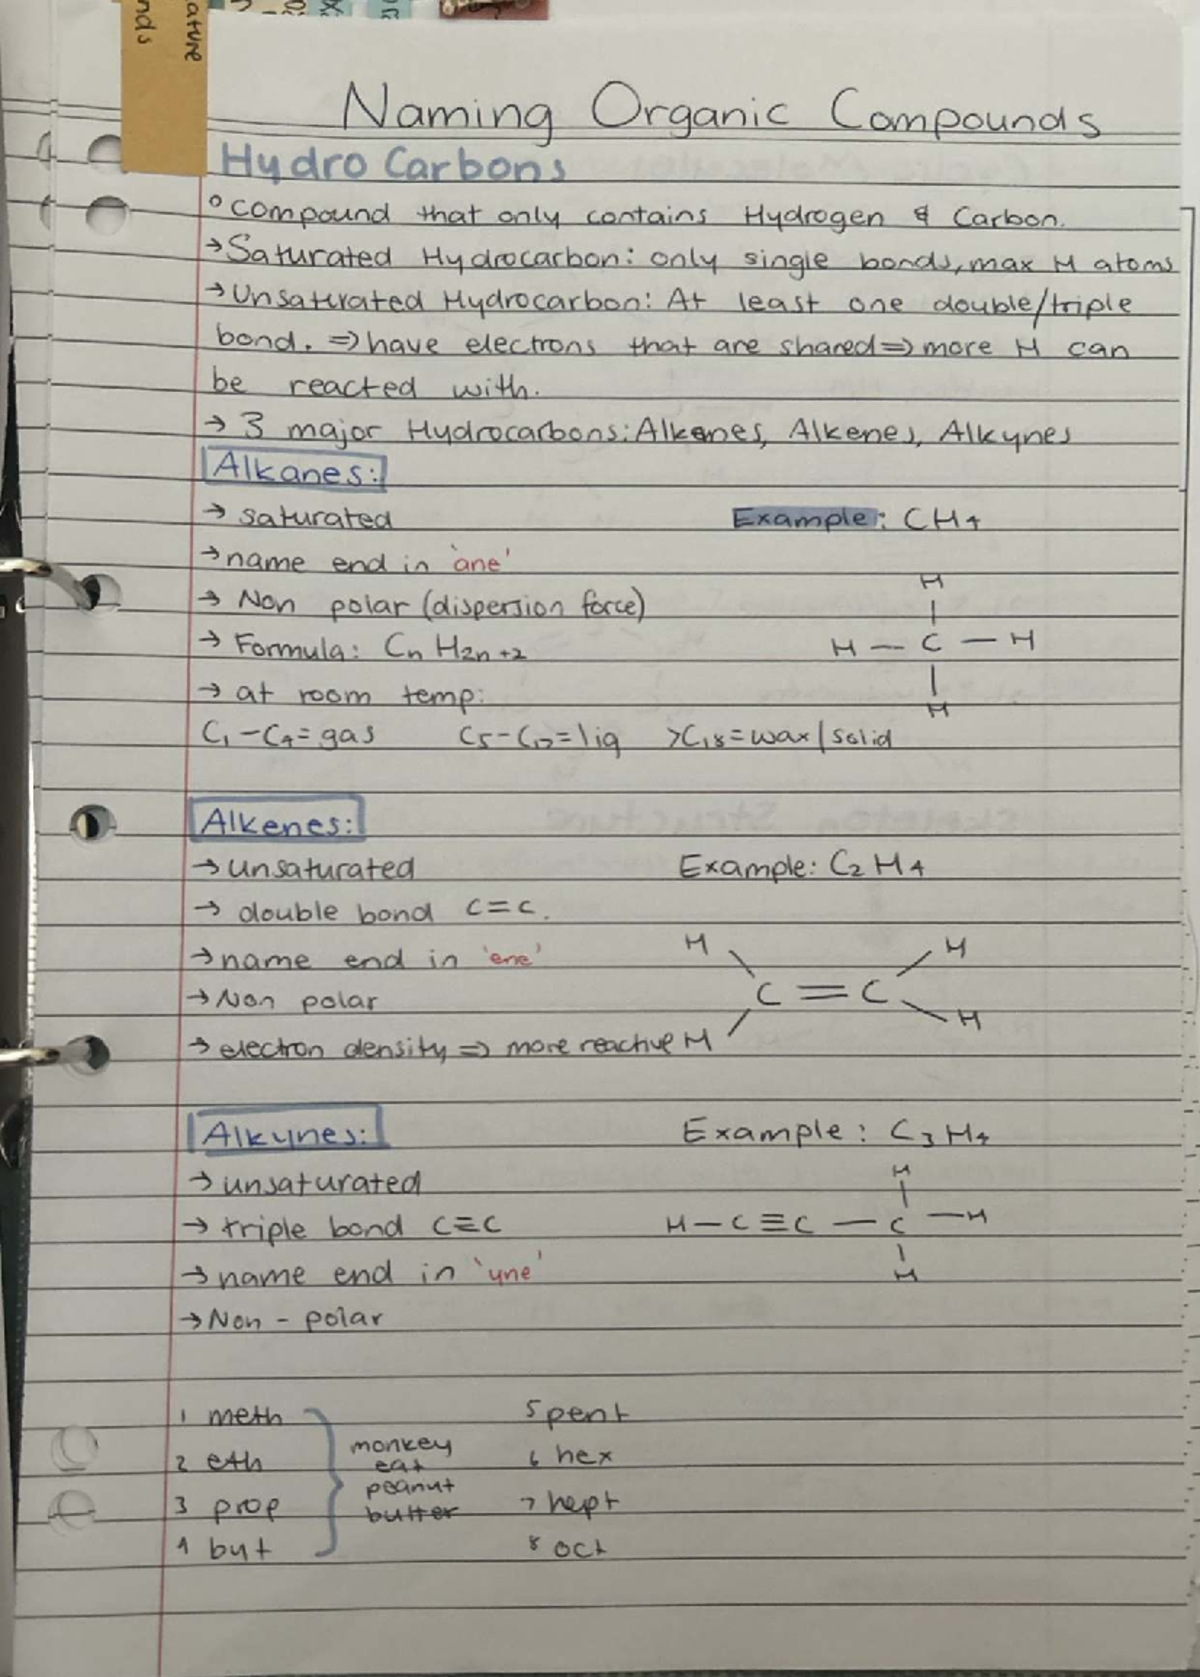 ature
nds
Naming Organic Compounds
Hydro Carbons
° compound that only contains Hydrogen & Carbon.
→ Saturated Hydrocarbon: only single bonds, max H atoms
→ Unsaturated Hydrocarbon: At least one double/triple
bond. => have electrons that are shared => more H can
be reacted with.
→ 3 major Hydrocarbons: Alkanes, Alkenes, Alkynes
Alkanes:
→ saturated Example: CH4
→ name end in 'ane'
H
→ Non polar (dispersion force)
→ Formula: CnH2n+2 H — C — H
→ at room temp:
H
C1 - C4 = gas C5 - C17 = liq >C18 = wax/solid
Alkenes:
→ unsaturated Example: C2H4
→ double bond C=C.
→ name end in 'ene' H H
→ Non polar C = C
H
→ electron density => more reactive H
Alkynes: Example: C3H4
→ unsaturated H
→ triple bond C≡C H — C ≡ C — C — H
→ name end in 'yne' H
→ Non - polar
1 meth 5 pent
monkey
2 eth eat 6 hex
peanut
3 prop butter 7 hept
4 but 8 oct